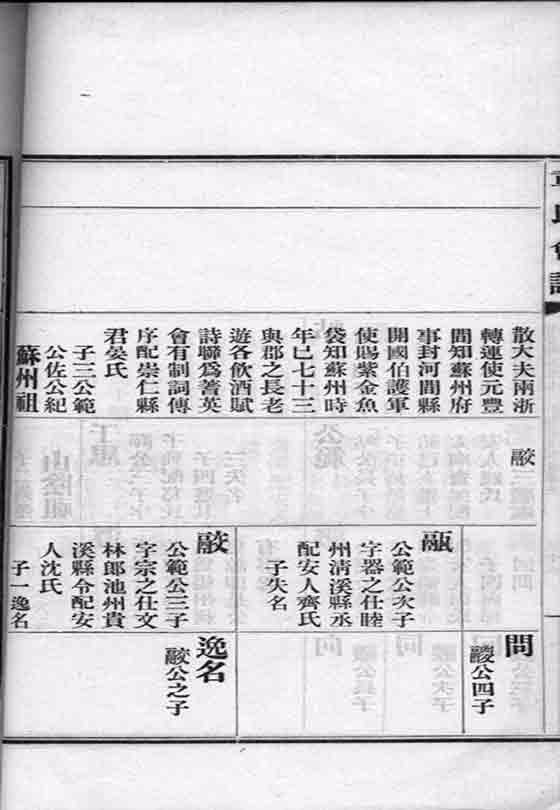 章氏會譜
散大夫兩浙
轉運使元豐
間知蘇州府
事封河間縣
開國伯護軍
使賜紫金魚
袋知蘇州時
年已七十三
與郡之長老
遊各飲酒賦
詩聯爲蓍英
會有制詞傳
序配崇仁縣
君晏氏
子三公範
公佐公紀
蘇州祖
瓹
公範公次子
字器之仕睦
州清溪縣丞
配安人齊氏
子失名
公範公三子
字宗之仕文
林郎池州貴
溪縣令配安
人沈氏
子一逸名
問
公四子
逸名
公之子